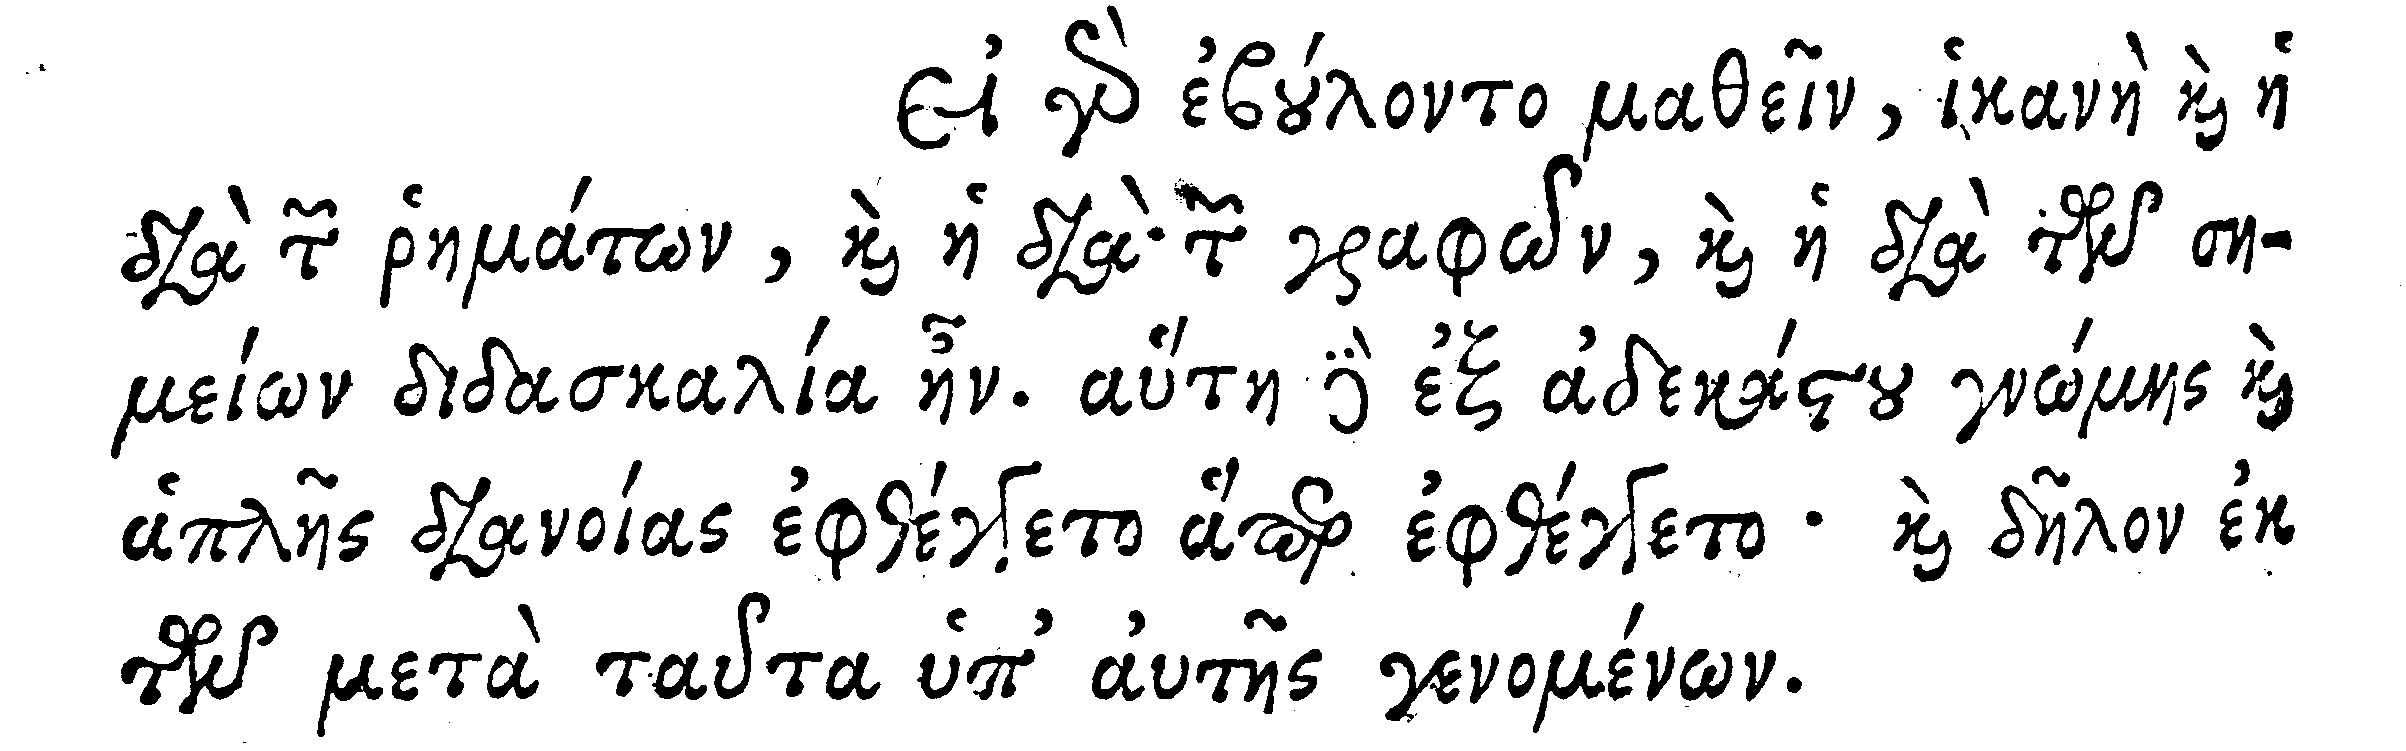 Εἰ γὰρ ἐβούλοντο μαθεῖν, ἱκανὴ καὶ ἡ
διὰ τῶν ῥημάτων, καὶ ἡ διὰ τῶν γραφῶν, καὶ ἡ διὰ τῶν ση-
μείων διδασκαλία ἦν. αὕτη δὲ ἐξ ἀδεκάστου γνώμης καὶ
ἁπλῆς διανοίας ἐφθέγγετο ἅπερ ἐφθέγγετο· καὶ δῆλον ἐκ
τῶν μετὰ ταῦτα ὑπ' αὐτῆς γενομένων.